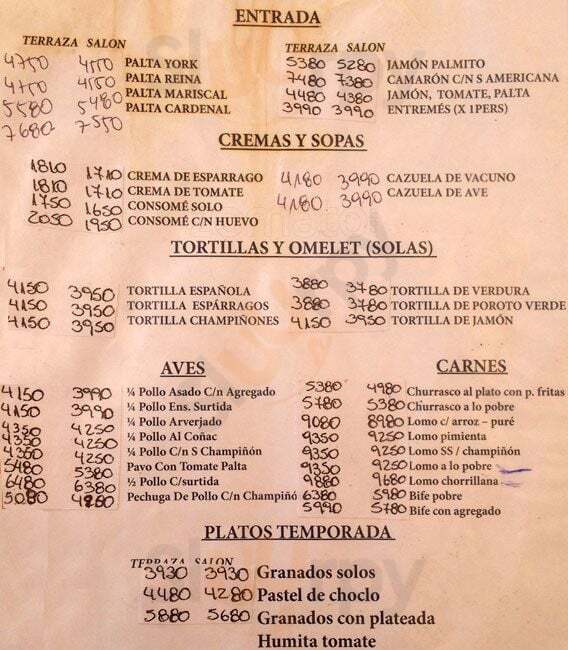 ENTRADA
TERRAZA SALON
4750 4550 PALTA YORK
4750 4550 PALTA REINA
5580 5480 PALTA MARISCAL
7680 7550 PALTA CARDENAL
TERRAZA SALON
5380 5280 JAMÓN PALMITO
7480 7380 CAMARÓN C/N S AMERICANA
4480 4380 JAMÓN, TOMATE, PALTA
3990 3990 ENTREMÉS (X 1PERS)
CREMAS Y SOPAS
1810 1710 CREMA DE ESPARRAGO
1810 1710 CREMA DE TOMATE
1750 1650 CONSOMÉ SOLO
2050 1950 CONSOMÉ C/N HUEVO
4180 3990 CAZUELA DE VACUNO
4180 3990 CAZUELA DE AVE
TORTILLAS Y OMELET (SOLAS)
4150 3950 TORTILLA ESPAÑOLA
4150 3950 TORTILLA ESPÁRRAGOS
4150 3950 TORTILLA CHAMPIÑONES
3880 3780 TORTILLA DE VERDURA
3880 3780 TORTILLA DE POROTO VERDE
4150 3950 TORTILLA DE JAMÓN
AVES
4150 3990 ¼ Pollo Asado C/n Agregado
4150 3990 ¼ Pollo Ens. Surtida
4350 4250 ¼ Pollo Arverjado
4350 4250 ¼ Pollo Al Coñac
4350 4250 ¼ Pollo C/n S Champiñón
5480 5380 Pavo Con Tomate Palta
6480 6380 ½ Pollo C/surtida
5080 4980 Pechuga De Pollo C/n Champiñó
CARNES
5380 4980 Churrasco al plato con p. fritas
5780 5380 Churrasco a lo pobre
9080 8980 Lomo c/ arroz – puré
9350 9250 Lomo pimienta
9350 9250 Lomo SS / champiñón
9350 9250 Lomo a lo pobre
9880 9680 Lomo chorrillana
6380 5980 Bife pobre
5990 5780 Bife con agregado
PLATOS TEMPORADA
TERRAZA SALON
3930 3930 Granados solos
4480 4280 Pastel de choclo
5880 5680 Granados con plateada
Humita tomate